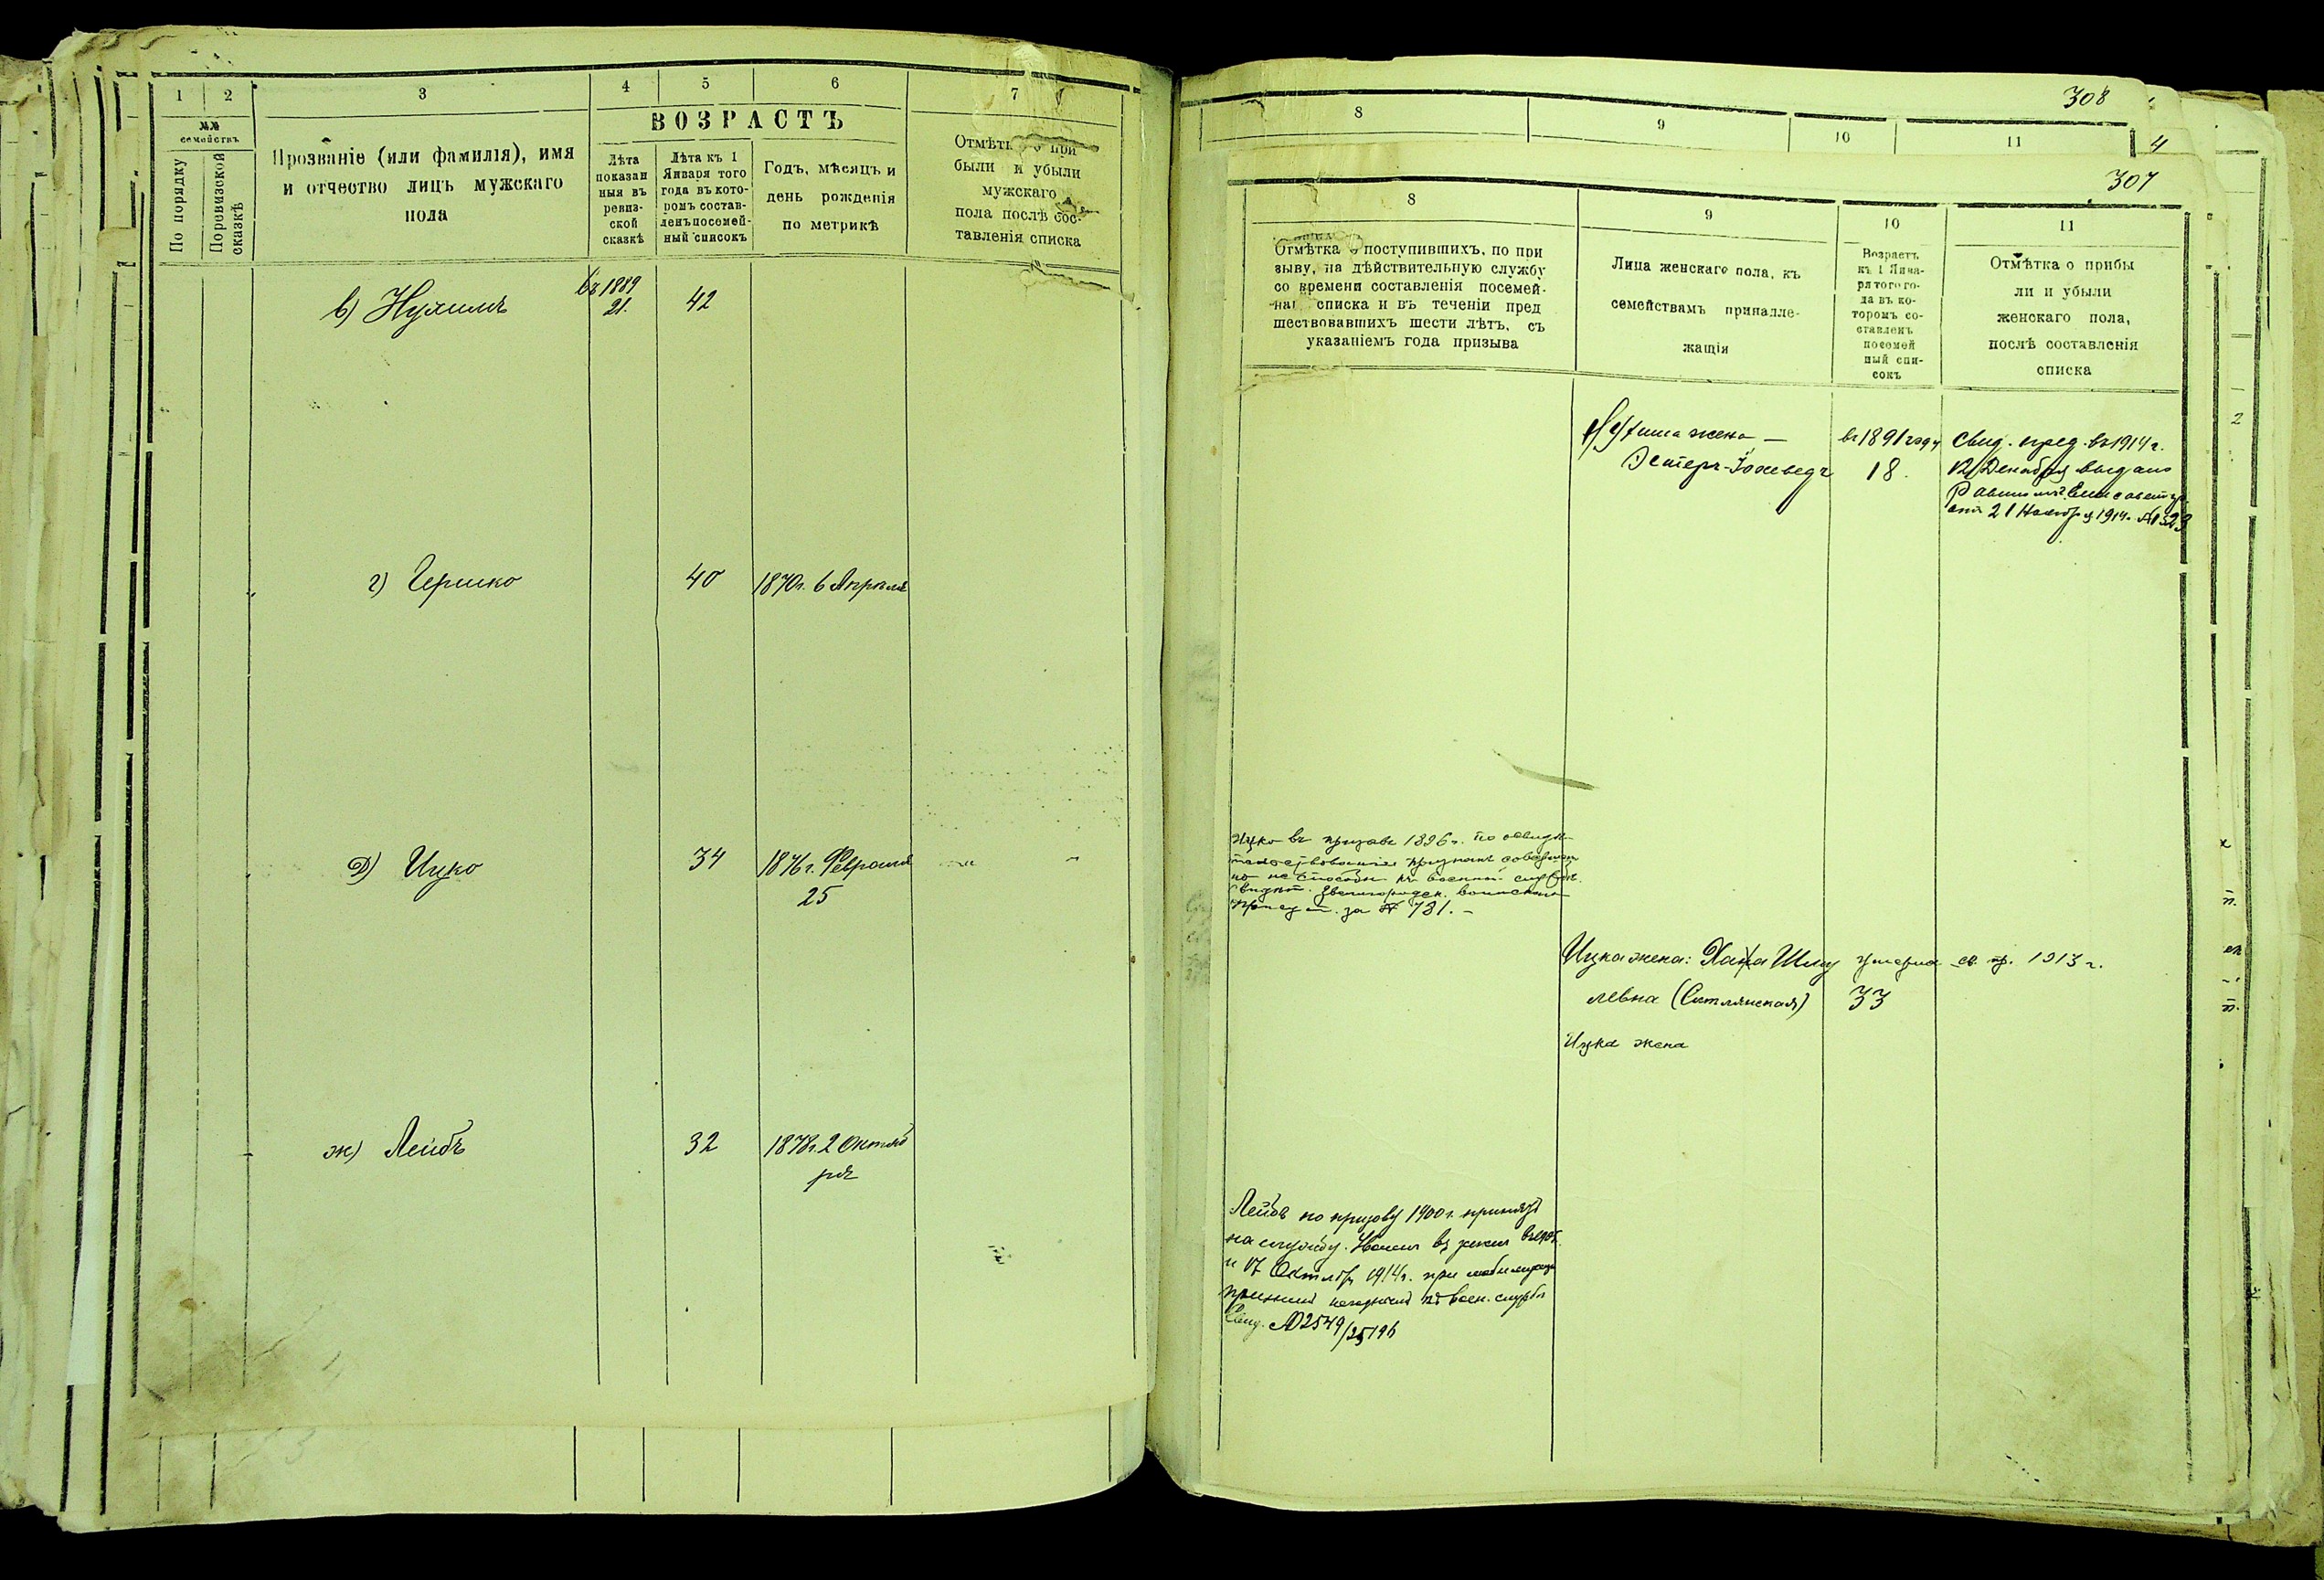 1 2 3 4 5 6 7
№№ семействъ
По порядку
По ревизской сказкѣ
Прозваніе (или фамилія), имя
и отчество лицъ мужскаго
пола
ВОЗРАСТЪ
Лѣта
показан
ныя въ
ревиз-
ской
сказкѣ
Лѣта къ 1
Января того
года въ кото-
ромъ состав-
ленъ посемей-
ный списокъ
Годъ, мѣсяцъ и
день рожденія
по метрикѣ
Отмѣтка о при
были и убыли
мужскаго
пола послѣ сос-
тавленія списка
в) Нухимъ
въ 1889
21.
42
г) Гершко
40
1870 г. 6 Апрѣля
д) Ицко
34
1876 г. Февраля
25
ж) Лейбъ
32
1878 г. 2 Октяб
ря
308
8 9 10 11
4
307
8 9 10 11
Отмѣтка о поступившихъ, по при
зыву, на дѣйствительную службу
со времени составленія посемей-
наг списка и въ теченіи пред
шествовавшихъ шести лѣтъ, съ
указаніемъ года призыва
Лица женскаго пола, къ
семействамъ принадле-
жащія
Возрастъ
къ 1 Янва-
ря того го-
да въ ко-
торомъ со-
ставленъ
посемей
ный спи-
сокъ
Отмѣтка о прибы
ли и убыли
женскаго пола,
послѣ составленія
списка
Нухима жена —
Эстеръ-Іохеведъ
въ 1891 году
18.
Свид. пред. въ 1914 г.
12 Декабря выдано
отъ 21 Ноября 1914 г. №1323
Ицко въ призывъ 1896 г. по освидѣ-
тельствованіи признанъ совершен
но не способн. къ военной службѣ.
Свидѣт. Звенигородск. воинскаго
Присут. за № 781. —
Ицка жена: Хана Шму
левна (Ситлянская)
умерла св. пр. 1913 г.
33
Ицка жена
Лейбъ по призыву 1900 г. принятъ
на службу.
и 17 Октября 1914 г. при мобилизаціи
признанъ негоднымъ къ воен. службѣ
Свид. №2549/25196